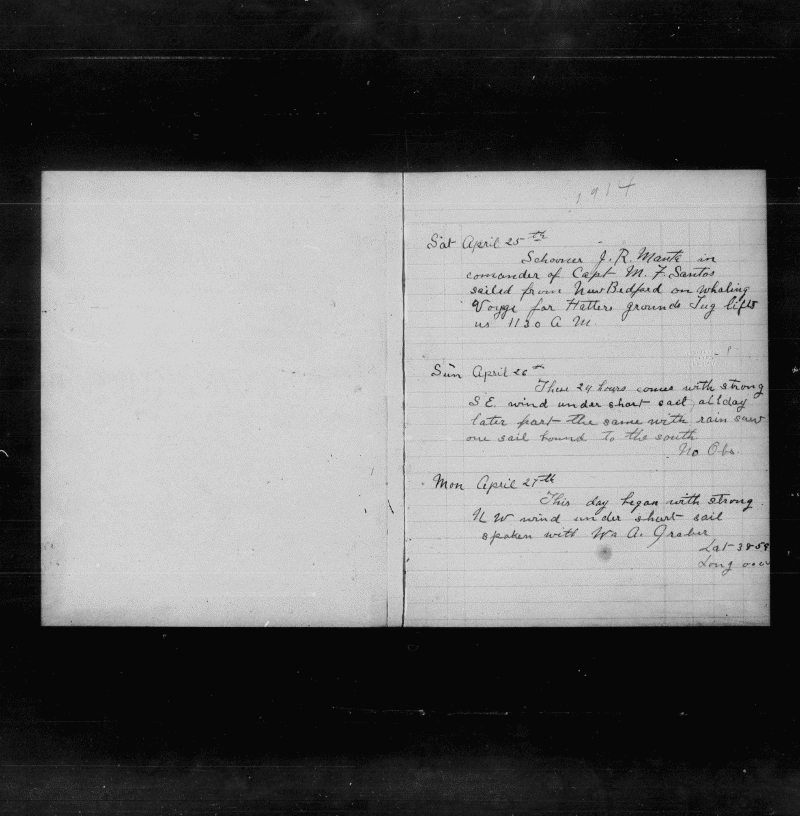 1914
Sat April 25th
Schooner J. R. Manta in
comander of Capt M. F. Santos
sailed from New Bedford on whaling
Voyge for Hatters grounds Tug lifts
us 1130 A M.
Sun April 26th
These 24 hours comes with strong
S E. wind under short sail all day
later part the same with rain saw
one sail bound to the south
No Obs.
Mon April 27th
This day began with strong
N W wind under short sail
spoken with Wm A. Graber
Lat 38 58
Long